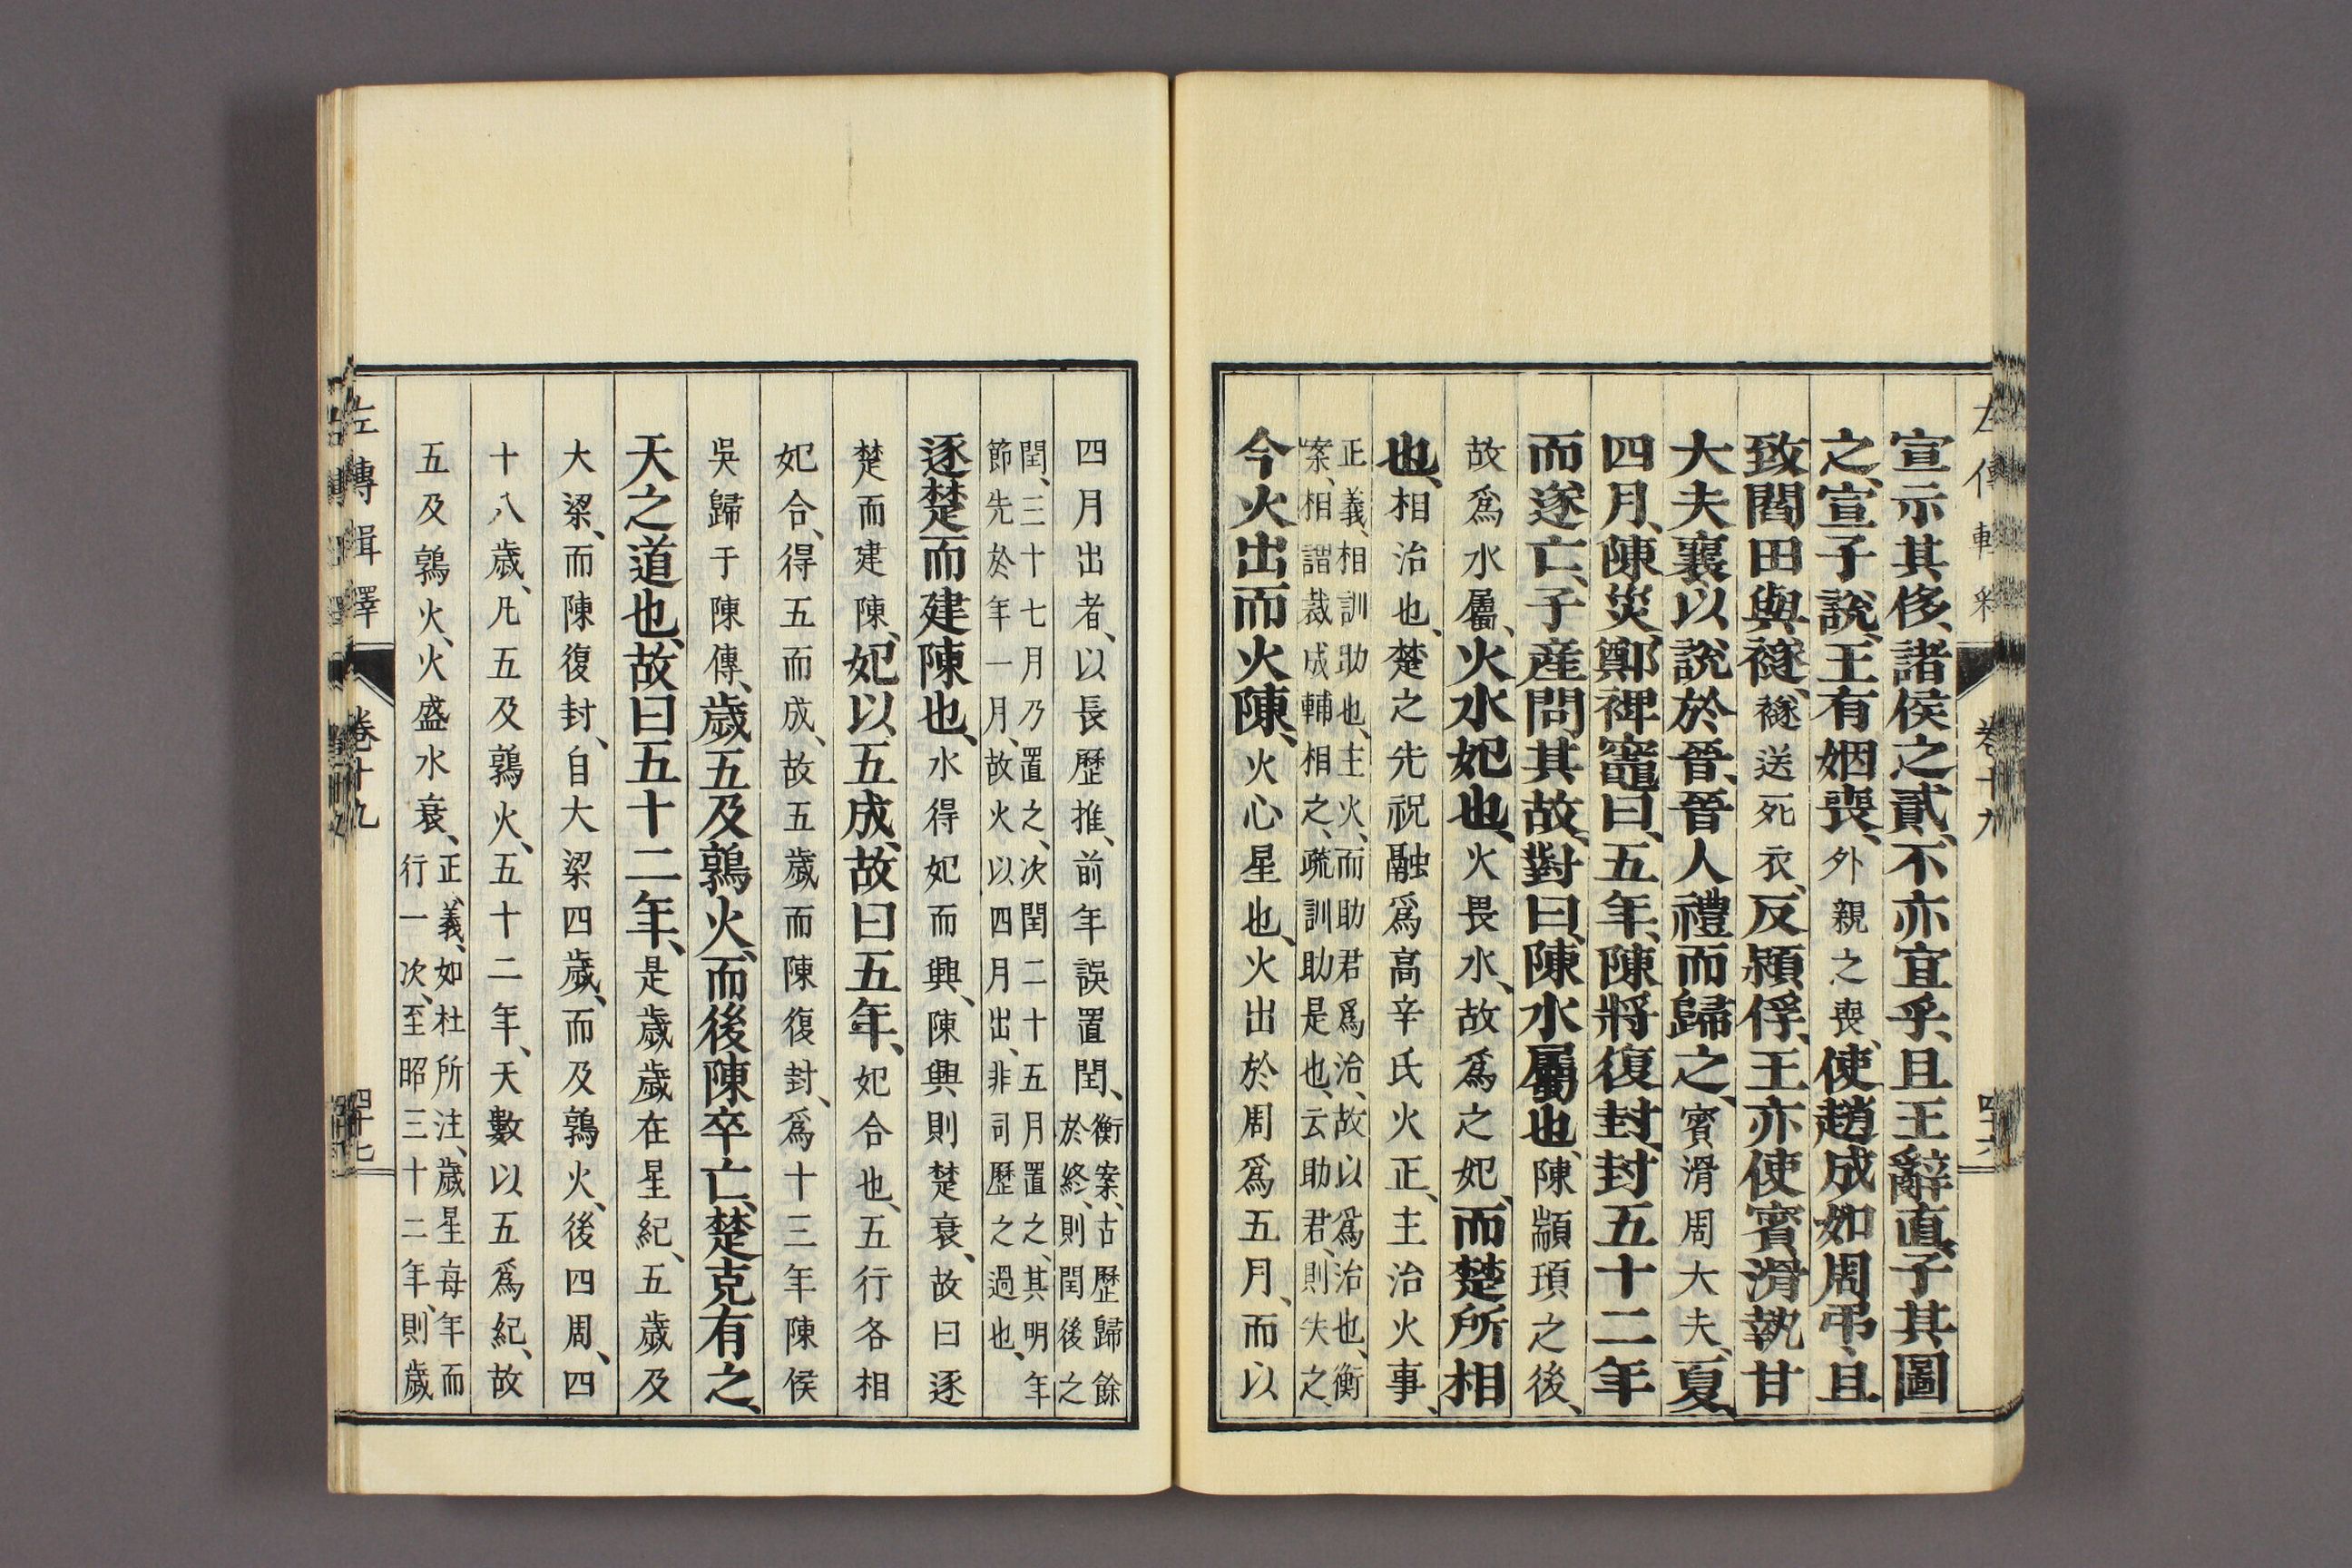 宣示其侈、諸侯之貳、不亦宜乎、且王辭直、子其圖
之、宣子說、王有姻喪、外親之喪、使趙成如周弔、且
致閻田與襚、襚送死衣、反潁俘、王亦使賓滑執甘
大夫襄以說於晉、晉人禮而歸之、賓滑周大夫、夏、
四月、陳災、鄭裨竈曰、五年、陳將復封、封五十二年
而遂亡、子産問其故、對曰、陳水屬也、陳顓頊之後、
故爲水屬、火水妃也、火畏水、故爲之妃、而楚所相
也、相治也、楚之先祝融爲高辛氏火正、主治火事、
正義、相訓助也、主火、而助君爲治、故以爲治也、衡
案、相謂裁成輔相之、疏訓助是也、云助君、則失之、
今火出而火陳、火心星也、火出於周爲五月、而以
四月出者、以長歷推、前年誤置閏、衡案、古歷歸餘
於終、則閏後之
閏、三十七月乃置之、次閏二十五月置之、其明年
節先於年一月、故火以四月出、非司歷之過也、
逐楚而建陳也、水得妃而興、陳興則楚衰、故曰逐
楚而建陳、妃以五成、故曰五年、妃合也、五行各相
妃合、得五而成、故五歲而陳復封、爲十三年陳侯
吳歸于陳傳、歲五及鶉火、而後陳卒亡、楚克有之、
天之道也、故曰五十二年、是歲歲在星紀、五歲及
大梁、而陳復封、自大梁四歲、而及鶉火、後四周、四
十八歲、凡五及鶉火、五十二年、天數以五爲紀、故
五及鶉火、火盛水衰、正義、如杜所注、歲星每年而
行一次、至昭三十二年、則歲
左傳輯釋 卷十九 四十七